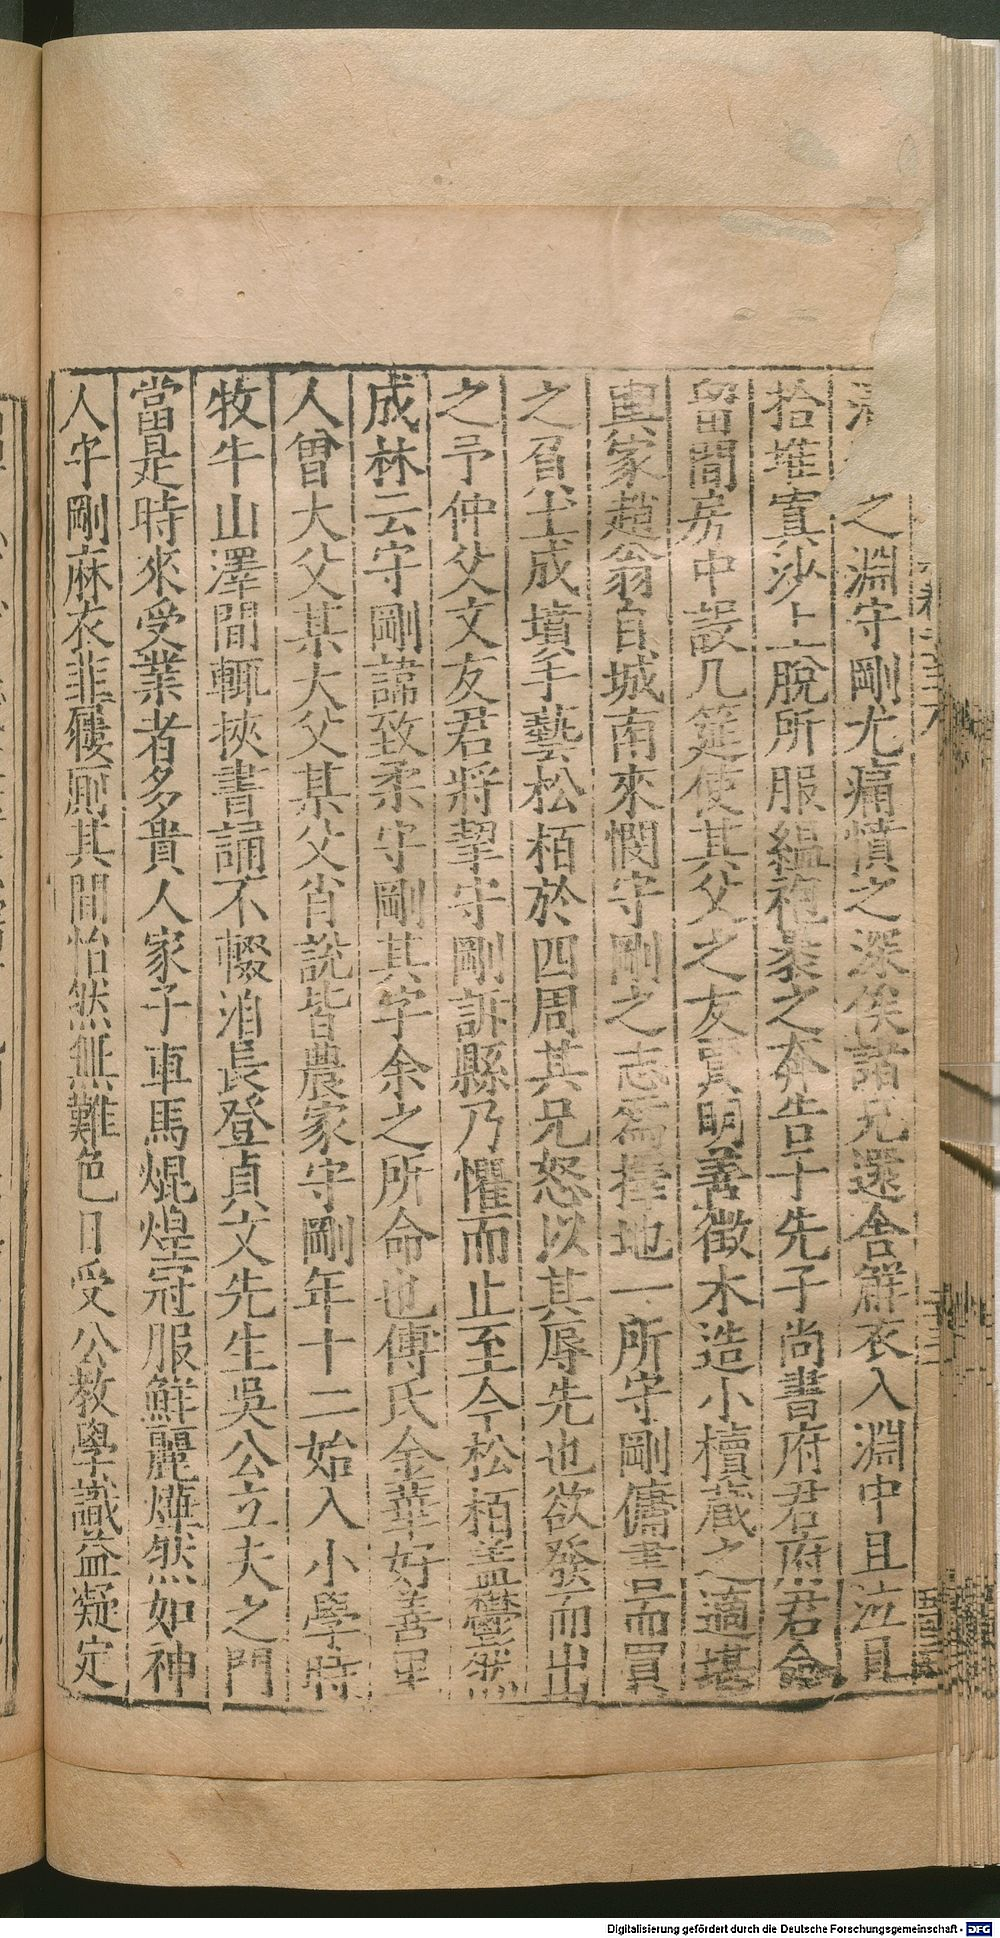 之淵守剛尤痛憤之深俟諸兄還舍鮮衣入淵中且泣且
拾堆寘沙上脫所服緼袍裹之奔告于先子尚書府君府君命
留閒房中設几筵使其父之友賈明善徵木造小櫝藏之適堪
輿家趙翁自城南來憫守剛之志為擇地一所守剛傭書而買
之負土成墳手藝松栢於四周其兄怒以其辱先也欲發而出
之予仲父文友君將挈守剛訴縣乃懼而止至今松栢盖鬱然
成林云守剛諱致柔守剛其字余之所命也傅氏金華好善里
人曾大父某大父某父肖說皆農家守剛年十二始入小學時
牧牛山澤間輒挾書誦不輟洎長登貞文先生吳公立夫之門
當是時來受業者多貴人家子車馬焜煌冠服鮮麗燁然如神
人守剛麻衣韭屨厠其間怡然無難色日受公教學識益凝定
Digitalisierung gefördert durch die Deutsche Forschungsgemeinschaft - DFG